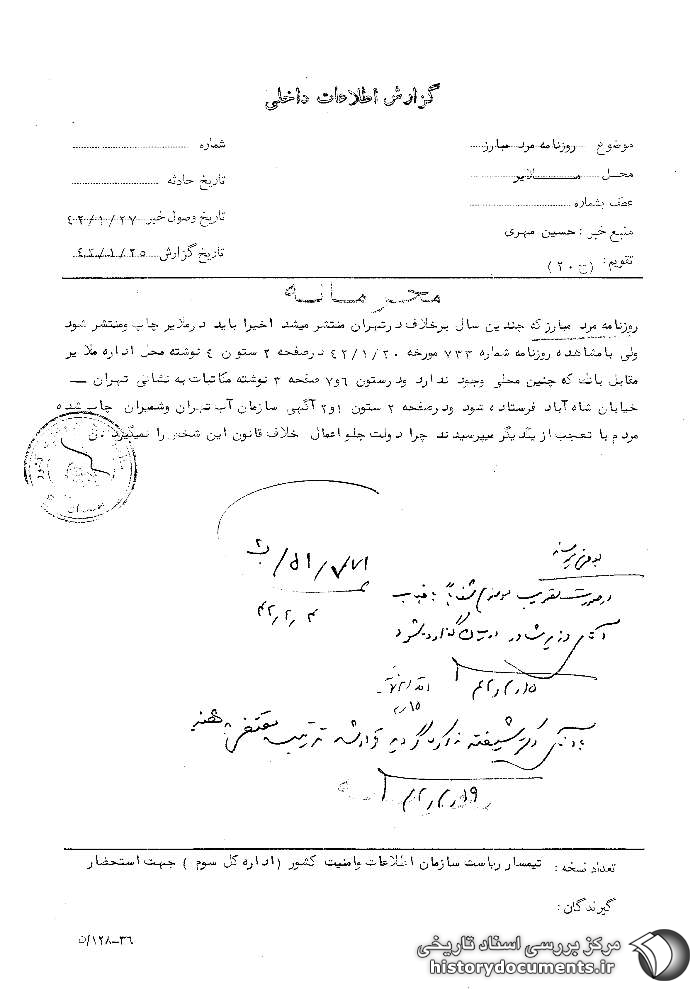 گزارش اطلاعات داخلی
موضوع روزنامه مرد مبارز
شماره
محل ملایر
تاریخ حادثه
عطف بشماره
تاریخ وصول خبر ۴۲/۱/۲۷
منبع خبر : حسین مهری
تاریخ گزارش ۴۲/۱/۲۵
تقویم : (ج ۲۰)
محرمانه
روزنامه مرد مبارز که چندین سال برخلاف درتهران منتشر میشد اخیرا باید درملایر چاپ ومنتشر شود
ولی بامشاهده روزنامه شماره ۷۳۳ مورخه ۴۲/۱/۲۰ درصفحه ۲ ستون ٤ نوشته محل اداره ملایر
مقابل بانک که چنین محلی وجود ندارد ودرستون ٦و۷ صفحه ۳ نوشته مکاتبات به نشانی تهران ــ
خیابان شاه آباد فرستاده شود ودرصفحه ۲ ستون ۱و۲ آگهی سازمان آب تهران وشمیران چاپ شده
مردم با تعجب از یکدیگر میپرسیدند چرا دولت جلو اعمال خلاف قانون این شخص را نمیگیرد
۴۲/۲/۴
۴۲/۲/۱۵
۱۵/۲
۴۲/۲/۱۹
تعداد نسخه : تیمسار ریاست سازمان اطلاعات وامنیت کشور (اداره کل سوم ) جهت استحضار
گیرندگان :
۳۶–۱۲۸/ن
مرکز بررسی اسناد تاریخی
historydocuments.ir